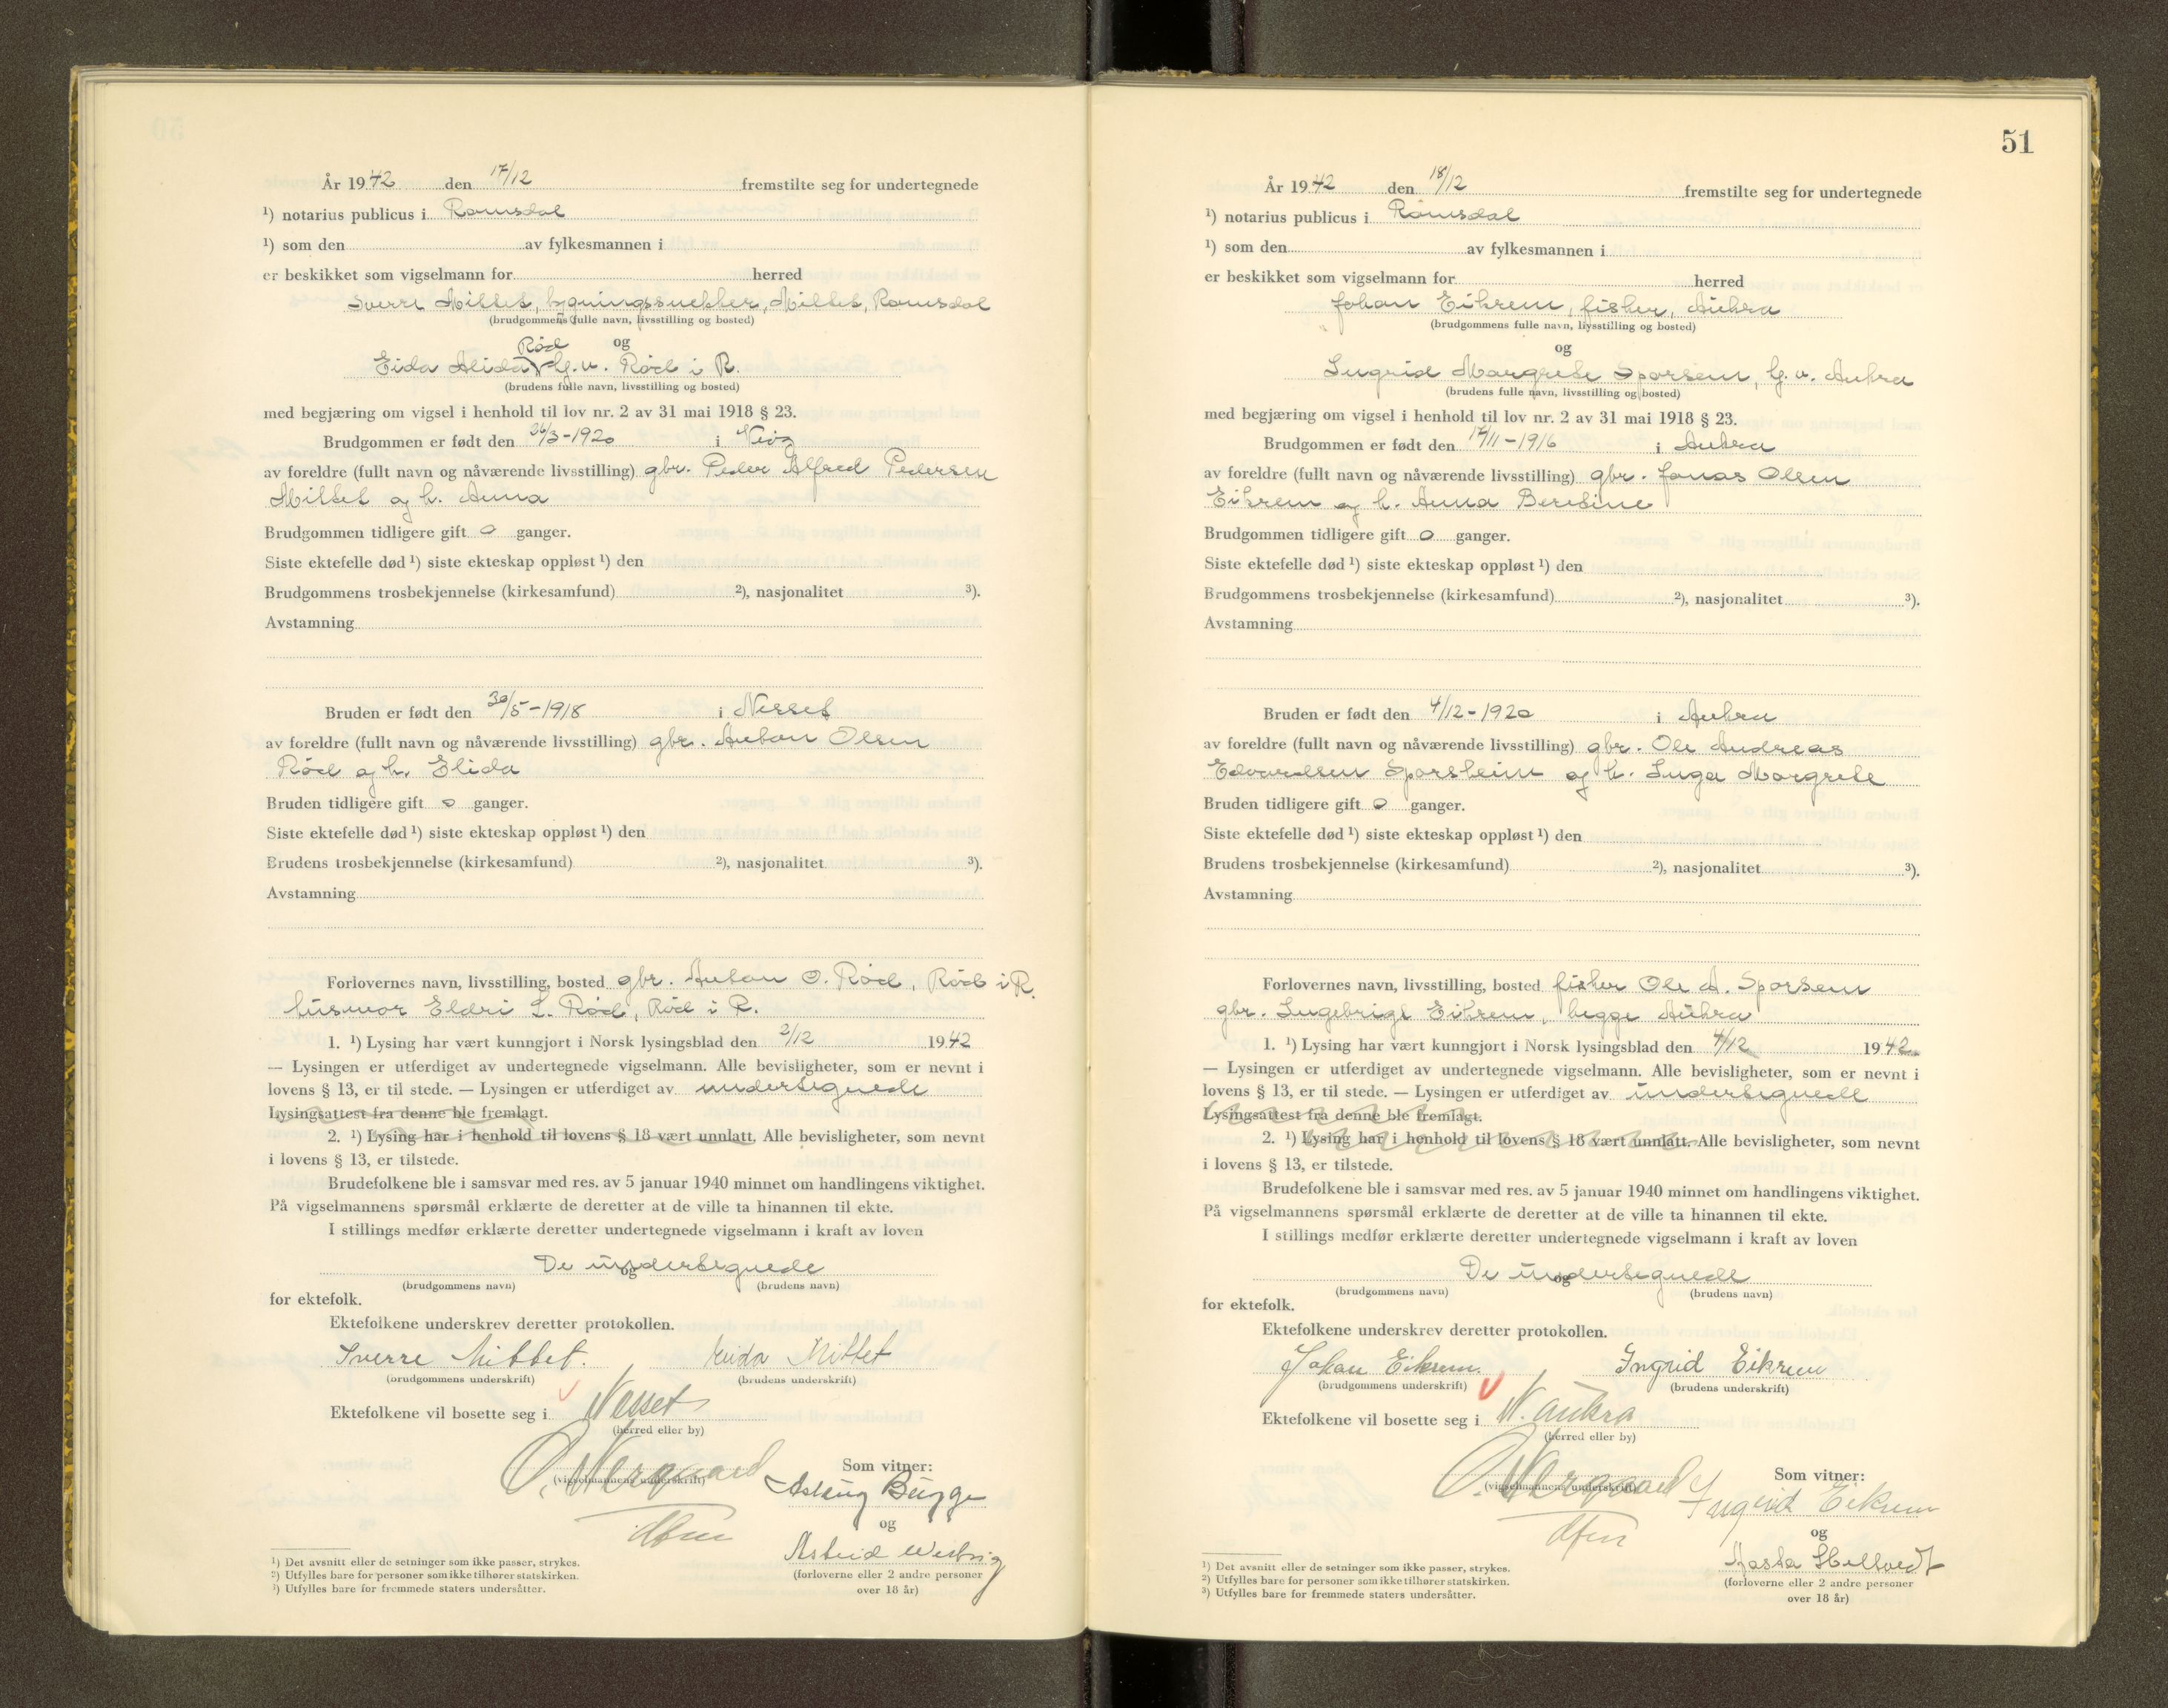 År 1942 den 17/12 fremstilte seg for undertegnede
¹) notarius publicus i Romsdal
¹) som den av fylkesmannen i
er beskikket som vigselmann for herred
Sverre Mittet, bygningssnekker, Mittet, Romsdal
(brudgommens fulle navn, livsstilling og bosted)
og
Rød
Eida Alida hj.v. Rød i R.
(brudens fulle navn, livsstilling og bosted)
med begjæring om vigsel i henhold til lov nr. 2 av 31 mai 1918 § 23.
Brudgommen er født den 26/3-1920 i
av foreldre (fullt navn og nåværende livsstilling) gbr. Peder Alfred Pedersen
Mittet og h. Anna
Brudgommen tidligere gift 0 ganger.
Siste ektefelle død ¹) siste ekteskap oppløst ¹) den
Brudgommens trosbekjennelse (kirkesamfund) ²), nasjonalitet ³).
Avstamning
Bruden er født den 30/5-1918 i Nesset
av foreldre (fullt navn og nåværende livsstilling) gbr. Anton Olsen
Rød og h. Elida
Bruden tidligere gift 0 ganger.
Siste ektefelle død ¹) siste ekteskap oppløst ¹) den
Brudens trosbekjennelse (kirkesamfund) ²), nasjonalitet ³).
Avstamning
Forlovernes navn, livsstilling, bosted gbr. Anton O. Rød, Rød i R.
husmor Eldri L. Rød, Rød i R.
1. ¹) Lysing har vært kunngjort i Norsk lysingsblad den 2/12 1942
— Lysingen er utferdiget av undertegnede vigselmann. Alle bevisligheter, som er nevnt i
lovens § 13, er til stede. — Lysingen er utferdiget av undertegnede
Lysingsattest fra denne ble fremlagt.
2. ¹) Lysing har i henhold til lovens § 18 vært unnlatt. Alle bevisligheter, som nevnt
i lovens § 13, er tilstede.
Brudefolkene ble i samsvar med res. av 5 januar 1940 minnet om handlingens viktighet.
På vigselmannens spørsmål erklærte de deretter at de ville ta hinannen til ekte.
I stillings medfør erklærte deretter undertegnede vigselmann i kraft av loven
De undertegnede
og
(brudgommens navn) (brudens navn)
for ektefolk.
Ektefolkene underskrev deretter protokollen.
Sverre Mittet. Eida Mittet
(brudgommens underskrift) (brudens underskrift)
Ektefolkene vil bosette seg i Nesset
(herred eller by)
O. Nergaard
(vigselmannens underskrift)
Som vitner:
Aslaug Bugge
og
Astrid
(forloverne eller 2 andre personer
over 18 år)
¹) Det avsnitt eller de setninger som ikke passer, strykes.
²) Utfylles bare for personer som ikke tilhører statskirken.
³) Utfylles bare for fremmede staters undersåtter.
51
År 1942 den 18/12 fremstilte seg for undertegnede
¹) notarius publicus i Romsdal
¹) som den av fylkesmannen i
er beskikket som vigselmann for herred
Johan Eikrem, fisker, Aukra
(brudgommens fulle navn, livsstilling og bosted)
og
Ingrid Margrete Sporsem, hj.v. Aukra
(brudens fulle navn, livsstilling og bosted)
med begjæring om vigsel i henhold til lov nr. 2 av 31 mai 1918 § 23.
Brudgommen er født den 17/11-1916 i Aukra
av foreldre (fullt navn og nåværende livsstilling) gbr. Jonas Olsen
Eikrem og h. Anna Beretine
Brudgommen tidligere gift 0 ganger.
Siste ektefelle død ¹) siste ekteskap oppløst ¹) den
Brudgommens trosbekjennelse (kirkesamfund) ²), nasjonalitet ³).
Avstamning
Bruden er født den 4/12-1920 i Aukra
av foreldre (fullt navn og nåværende livsstilling) gbr. Ole Andreas
Edvardsen Sporsheim og h. Inga Margrete
Bruden tidligere gift 0 ganger.
Siste ektefelle død ¹) siste ekteskap oppløst ¹) den
Brudens trosbekjennelse (kirkesamfund) ²), nasjonalitet ³).
Avstamning
Forlovernes navn, livsstilling, bosted fisker Ole A. Sporsem
gbr. Ingebrigt Eikrem, begge Aukra
1. ¹) Lysing har vært kunngjort i Norsk lysingsblad den 4/12 1942
— Lysingen er utferdiget av undertegnede vigselmann. Alle bevisligheter, som er nevnt i
lovens § 13, er til stede. — Lysingen er utferdiget av undertegnede
Lysingsattest fra denne ble fremlagt.
2. ¹) Lysing har i henhold til lovens § 18 vært unnlatt. Alle bevisligheter, som nevnt
i lovens § 13, er tilstede.
Brudefolkene ble i samsvar med res. av 5 januar 1940 minnet om handlingens viktighet.
På vigselmannens spørsmål erklærte de deretter at de ville ta hinannen til ekte.
I stillings medfør erklærte deretter undertegnede vigselmann i kraft av loven
De undertegnede
og
(brudgommens navn) (brudens navn)
for ektefolk.
Ektefolkene underskrev deretter protokollen.
Johan Eikrem. Ingrid Eikrem
(brudgommens underskrift) (brudens underskrift)
Ektefolkene vil bosette seg i N. Aukra
(herred eller by)
O. Nergaard
(vigselmannens underskrift)
Som vitner:
Ingrid Eikrem
og
Aasta
(forloverne eller 2 andre personer
over 18 år)
¹) Det avsnitt eller de setninger som ikke passer, strykes.
²) Utfylles bare for personer som ikke tilhører statskirken.
³) Utfylles bare for fremmede staters undersåtter.